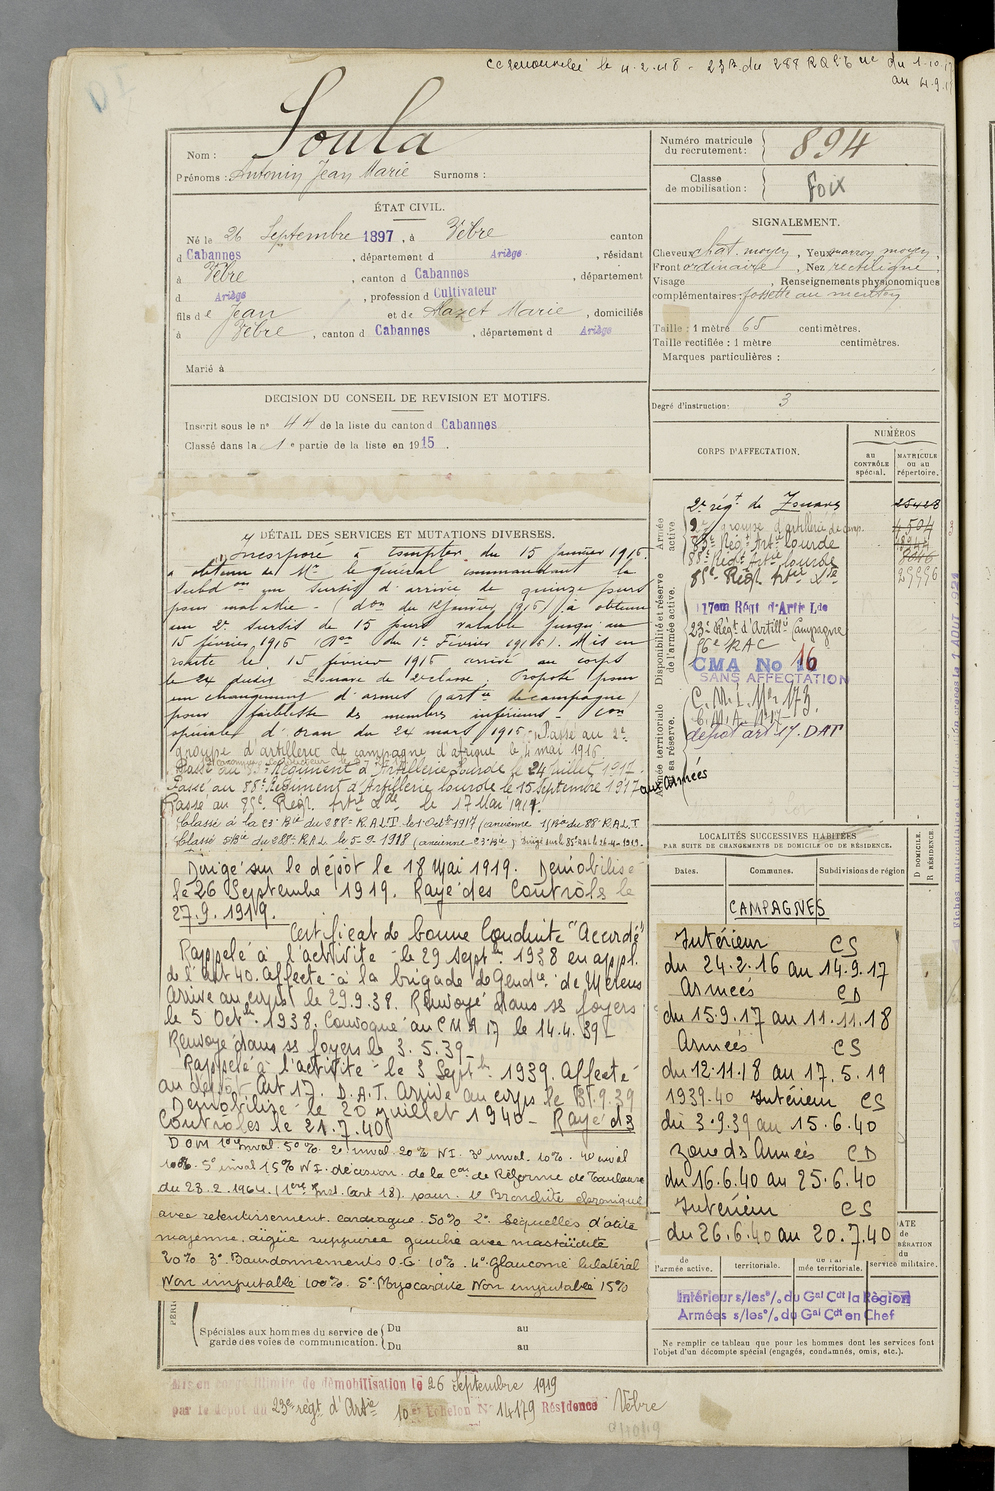 renouvelé le 4.2.48 - 23 du 288 RA
du 1.10.17
au 4.9.1
Nom : Soula
Prénoms : Antonin Jean Marie Surnoms :
ÉTAT CIVIL.
Né le 26 Septembre 1897, à Vèbre canton
d Cabannes, département d Ariège, résidant
à Vèbre, canton d Cabannes, département
d Ariège, profession d Cultivateur
fils de Jean et de Mazet Marie, domiciliés
à Vèbre, canton d Cabannes, département d Ariège
Marié à
DECISION DU CONSEIL DE REVISION ET MOTIFS.
Inscrit sous le n° 44 de la liste du canton d Cabannes
Classé dans la 1e partie de la liste en 1915.
DÉTAIL DES SERVICES ET MUTATIONS DIVERSES.
Incorporé à compter du 15 Janvier 1916.
a obtenu de Mr le général commandant la
Subdon un sursis d'arrivée de quinze jours
pour maladie - (don du 12 Janvier 1916) a obtenu
un 2e sursis de 15 jours valable jusqu'au
15 février 1916 don du 1er Février 1916. Mis en
route le 15 février 1916 arrivé au corps
le 24 dudit. Zouave de 2e classe. Proposé pour
un changement d'armes (artie de campagne)
pour faiblesse des membres inférieurs - Con
spéciale d'Oran du 24 mars 1916. Passé au 2e
groupe d'artillerie de campagne d'afrique le 4 mai 1916
Passé au 83e Régiment d'Artillerie Lourde le 24 Juillet 1917.
Passé au 88e Régiment d'Artillerie lourde le 15 Septembre 1917 aux Armées
Passé au 85e Régt Artie Lde le 17 Mai 1919.
Classé à la 23e Bie du 288e R.A.L.T. le 1er Octe 1917 (ancienne 1e Bie du 88e R.A.L.T
Classé 5e Bie du 288e R.A.L le 5-9-1918 (ancienne 23e Bie) dirigé sur le 85e RAL le 26-4-1919.
Dirigé sur le dépôt le 18 Mai 1919. Démobilisé
le 26 Septembre 1919. Rayé des Contrôls le
27.9.1919.
Certificat de bonne Conduite "Accordé"
Rappelé à l'activité le 29 septe 1938 en appl.
de l'art 40. Affecté à la brigade de Gendie de Mérens
Arrivé au corps le 29.9.38. Renvoyé dans ses foyers
le 5 Octe 1938. Convoqué au CMA 17 le 14.4.39
Renvoyé dans ses foyers le 3.5.39
Rappelé à l'activité le 3 Septe 1939. Affecté
au dépôt Art 17. D.A.T. Arrivé au corps le 13.9.39
Démobilisé le 20 juillet 1940 - Rayé ds
Contrôles le 21.7.40
DOM 1° inval. 50% 2° inval. 20% N I. 3° inval. 10%. 4° inval
100%. 5° inval 15% N I. décision de la Con de Réforme de Toulouse
du 28.2.1964. (1ère Inst. art 18). pour 1° Bronchite chronique
avec retentissement cardiaque. 50% 2° Séquelles d'otite
moyenne aigüe suppurée gauche avec mastoïdite
20% 3° Bourdonnements O.G. 10%. 4° Glaucome bilatéral
Non imputable 100%. 5° Myocardite Non imputable 15%
Spéciales aux hommes du service de garde des voies de communication. Du au
Du au
Mis en congé illimité de démobilisation le 26 Septembre 1919
par le dépôt du 23e régt d'Artie 10e Echelon N° 14179 Résidence Vèbre
Numéro matricule du recrutement : 894
Classe de mobilisation : Foix
SIGNALEMENT.
Cheveux chat. moyen, Yeux marron moyen,
Front ordinaire, Nez rectiligne,
Visage , Renseignements physionomiques
complémentaires : fossette au menton
Taille : 1 mètre 65 centimètres.
Taille rectifiée : 1 mètre centimètres.
Marques particulières :
Degré d'instruction : 3
CORPS D'AFFECTATION.
NUMÉROS
au CONTRÔLE spécial.
MATRICULE ou au répertoire.
Armée active
2e régt de Zouaves 25428
2e groupe d'artillerie de camp. 4504
83e Régt Artie lourde
88e Régt Artie lourde
85e Régt Artie Lde 29996
Disponibilité et réserve de l'armée active.
17em Régt d'Artie Lde
23e Régt d'Artillie Campagne
56e RAC
CMA No 16
SANS AFFECTATION
Armée territoriale et sa réserve.
C.M.I. N° 173.
C.M.A. N° 17
dépôt art 17. DAT
LOCALITÉS SUCCESSIVES HABITÉES
PAR SUITE DE CHANGEMENTS DE DOMICILE OU DE RÉSIDENCE.
Dates. Communes. Subdivisions de région
D DOMICILE. R RÉSIDENCE.
CAMPAGNES
Intérieur CS
du 24.2.16 au 14.9.17
Armées CD
du 15.9.17 au 11.11.18
Armées CS
du 12.11.18 au 17.5.19
1939.40 Intérieur CS
du 3.9.39 au 15.6.40
zone ds Armées CD
du 16.6.40 au 25.6.40
Intérieur CS
du 26.6.40 au 20.7.40
de l'armée active. territoriale. de l'armée territoriale. service militaire.
Intérieur s/les °/. du Gal Cdt la Région
Armées s/les °/. du Gal Cdt en Chef
Ne remplir ce tableau que pour les hommes dont les services font
l'objet d'un décompte spécial (engagés, condamnés, omis, etc.).